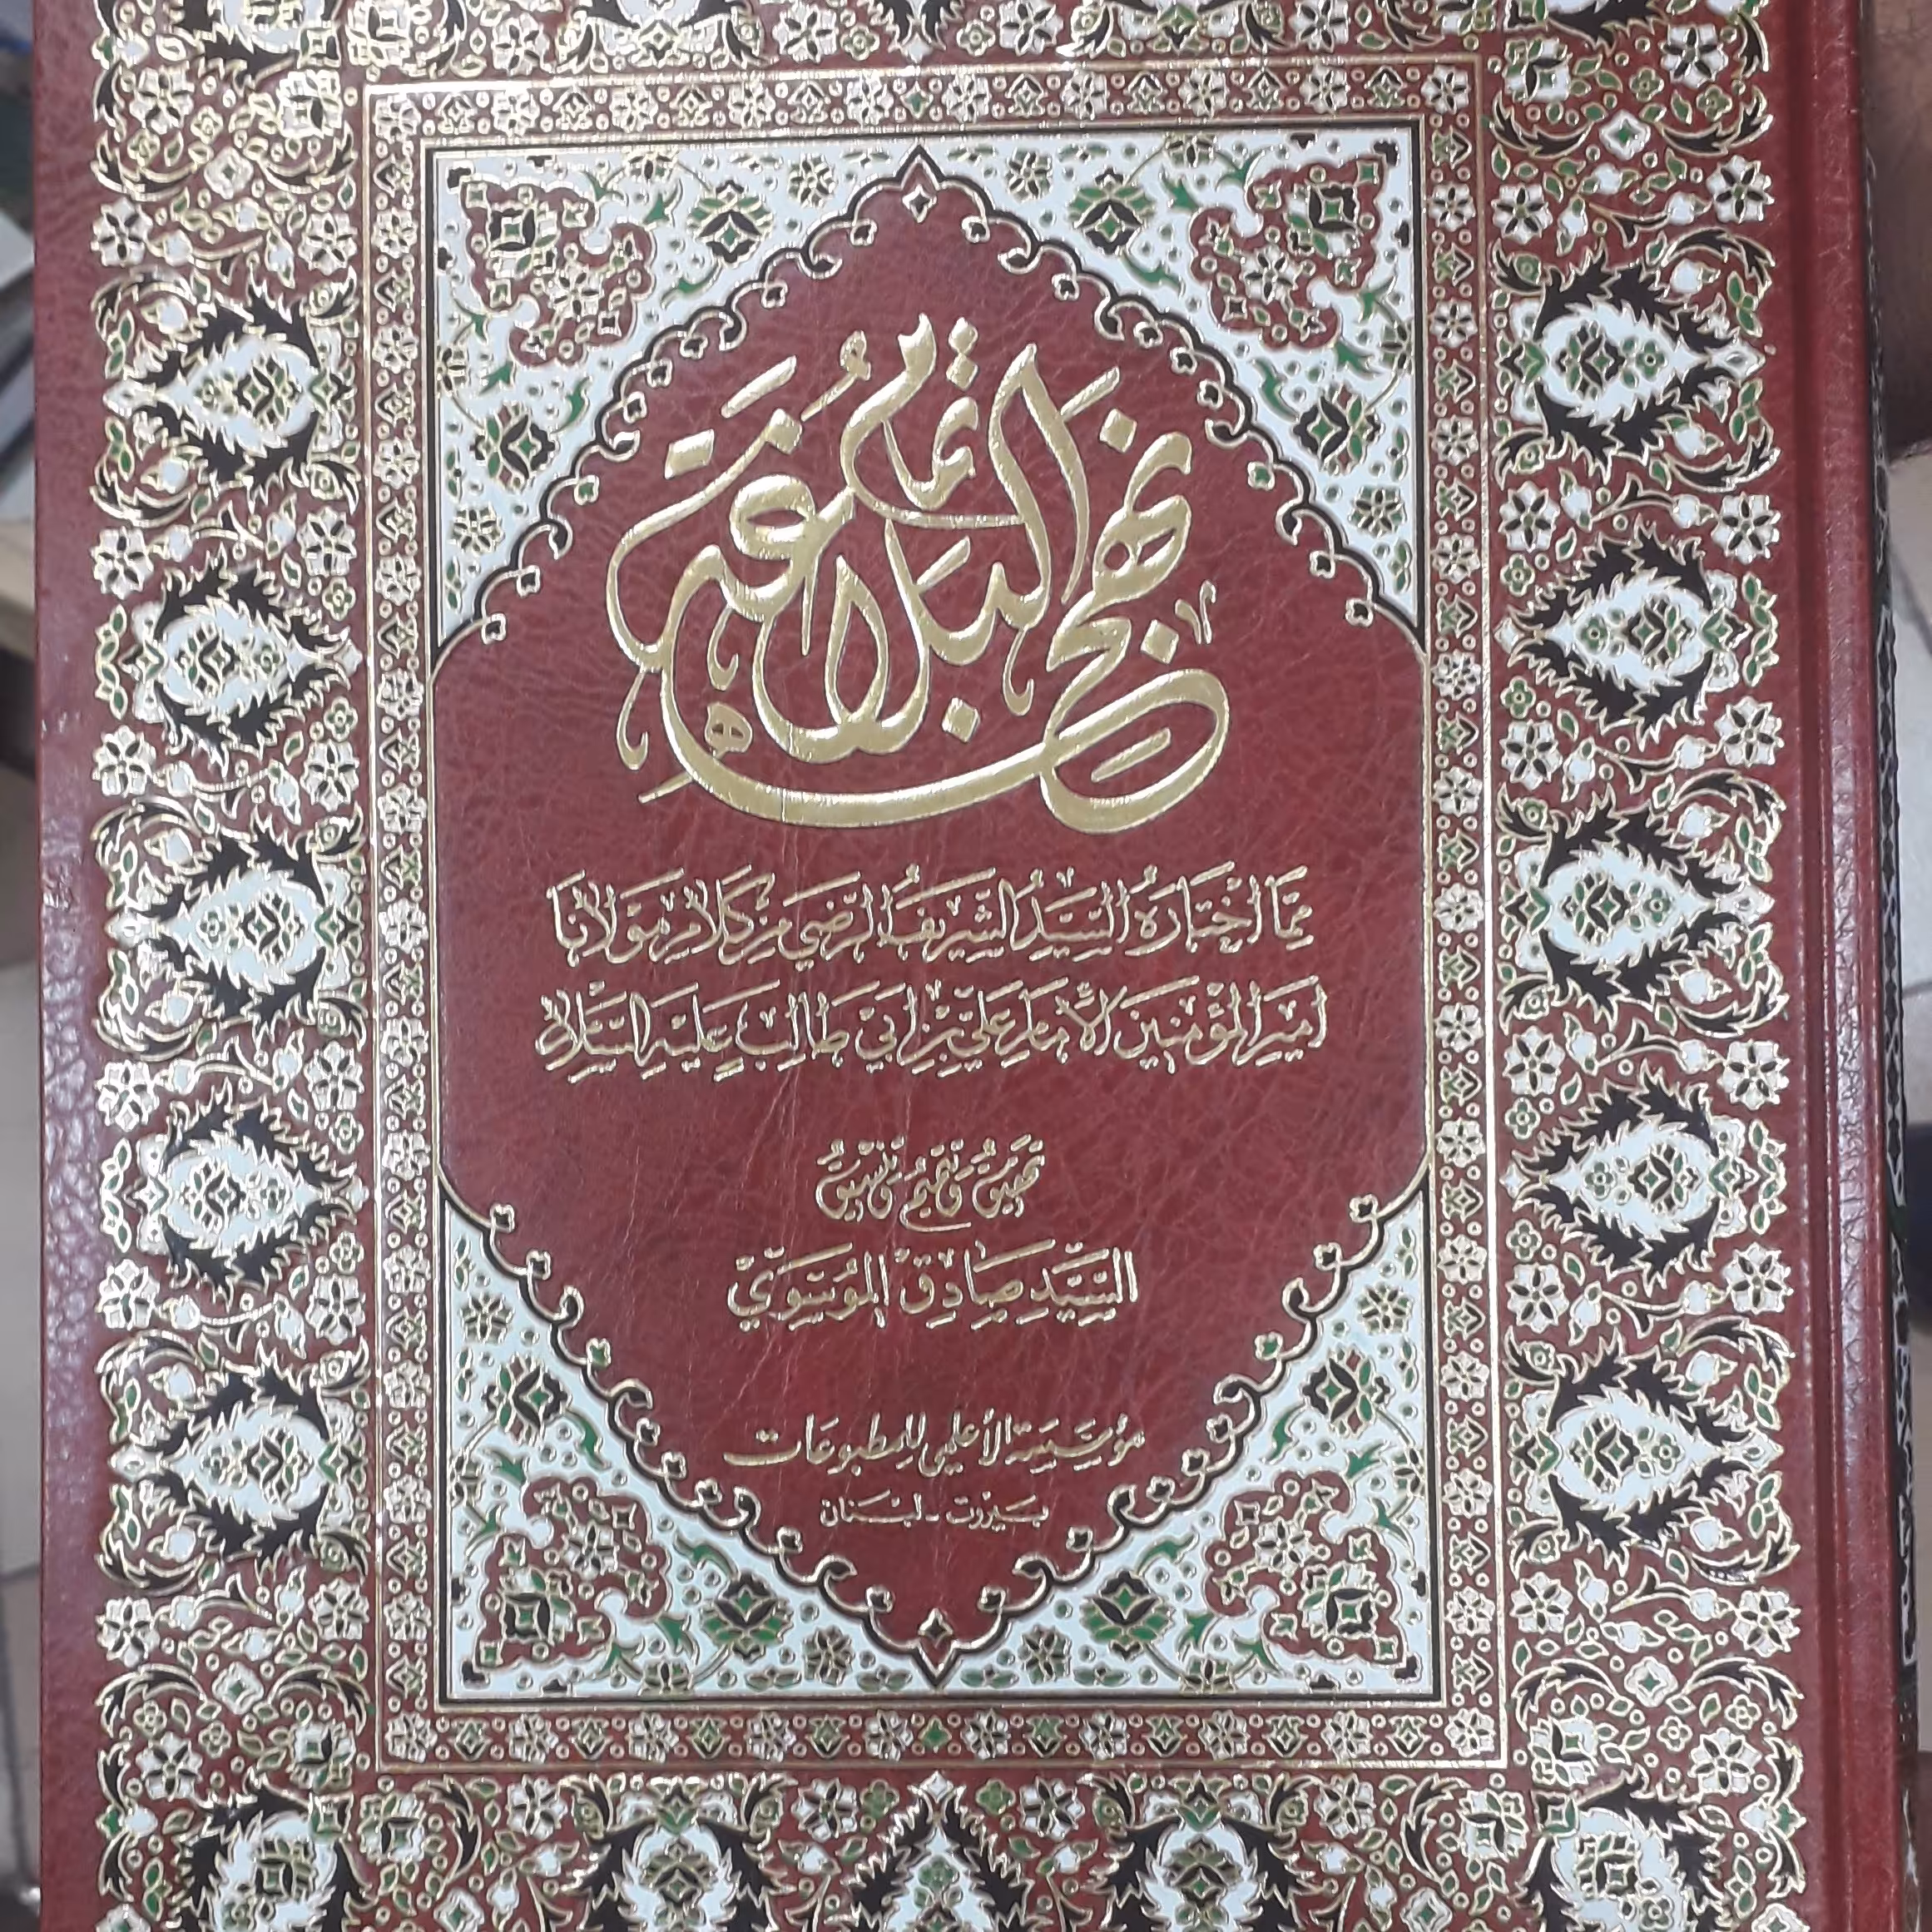 تمام نهج البلاغة
مِمَّا اخْتَارَهُ السَّيِّدُ الشَّرِيفُ الرَّضِيّ مِنْ كَلَامِ مَوْلَانَا
أَمِيرِ الْمُؤْمِنِينَ الْإِمَامِ عَلِيِّ بْنِ أَبِي طَالِبٍ عَلَيْهِ السَّلَام
تحقيقُ وتتميمُ وتنسيقُ
السَّيِّد صَادِق المُوسَوِيّ
مؤسّسة الأعلمي للمطبوعات
بيروت - لبنان